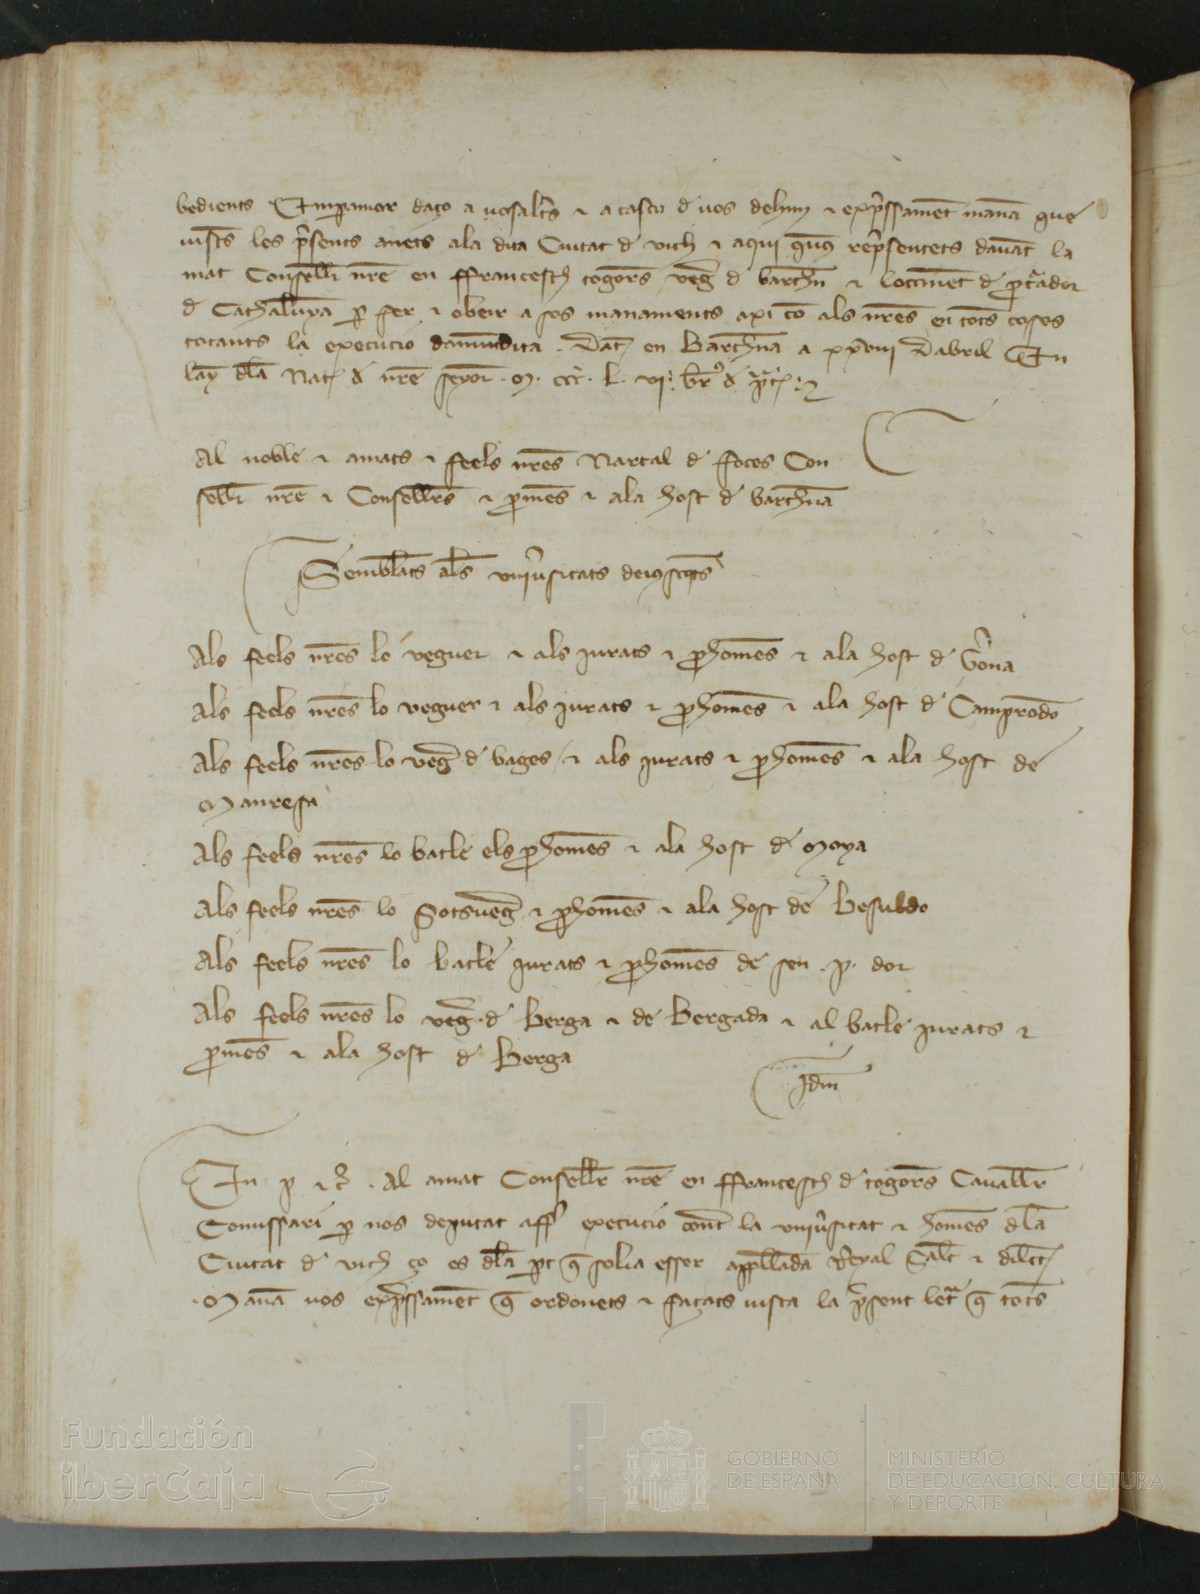 bedients Emperamor daço a vosaltrs ⁊ a cascu d vos dehim ⁊ exprssament manam que
vistes les prsents anets ala dita Ciutat d vich ⁊ aqui reprsentets dauat la
mat Conseller nre en ffrancesch togores veg d barchn ⁊ loctinent d pcurador
d Cathalunya p fer ⁊ obeir a sos manaments axi co als nres en totes coses
tocants la execucio damundita . Dat en Barchna a xxviii Dabril En
lay dla Nat d nre Seyor . M . ccc . l . vi
Al noble ⁊ amats ⁊ feels nres Nartal d foces Con
seller nre ⁊ Consellrs ⁊ pmes ⁊ ala host d barchna
Semblats als vniusitats deiusscrits
Als feels nres lo veguer ⁊ als jurats ⁊ phomes ⁊ ala host d Gĩona
Als feels nres lo veguer ⁊ als jurats ⁊ phomes ⁊ ala host d Camprodo
Als feels nres lo veg d bages ⁊ als jurats ⁊ phomes ⁊ ala host de
Manresa
Als feels nres lo batle els phomes ⁊ ala host d Moya
Als feels nres lo Sotsveg ⁊ phomes ⁊ ala host de Besuldo
Als feels nres lo batle jurats ⁊ phomes de sen . p . dor
Als feels nres lo veg d Berga ⁊ de Bergada ⁊ al batle jurats ⁊
pmes ⁊ ala host d Berga
Idm
En p ⁊ c . Al amat Conseller nre en ffrancesch d togores Cauallr
Comissari p nos deputat aff execucio cont la vniusitat ⁊ homes dla
Ciutat d vich ço es dla pt q solia esser appllada Reyal Salt ⁊ dilect
Mana vos exprssament q ordonets ⁊ façats vista la psent letra q tots
Fundación
iberCaja
GOBIERNO
DE ESPAÑA
MINISTERIO
DE EDUCACIÓN, CULTURA
Y DEPORTE